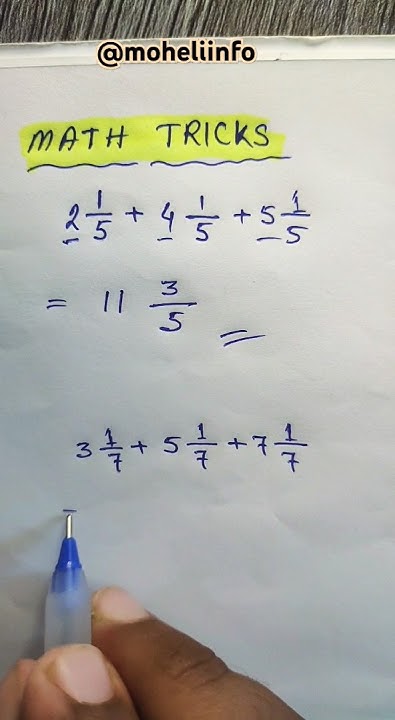 @moheliinfo
MATH TRICKS
2 1/5 + 4 1/5 + 5 1/5
= 11 3/5
3 1/7 + 5 1/7 + 7 1/7